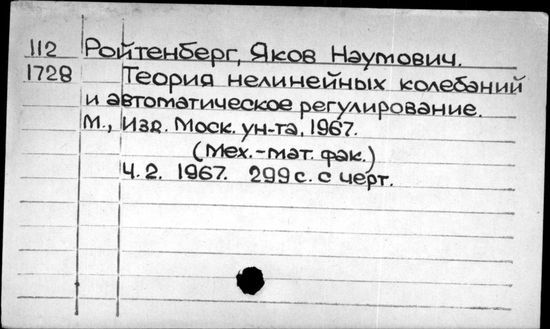 112 Ройтенберг, Яков Наумович.
1728 Теория нелинейных колебаний
и автоматическое регулирование.
М., Изд. Моск. ун-та, 1967.
(Мех.-мат. фак.)
Ч. 2. 1967. 299 с. с черт.